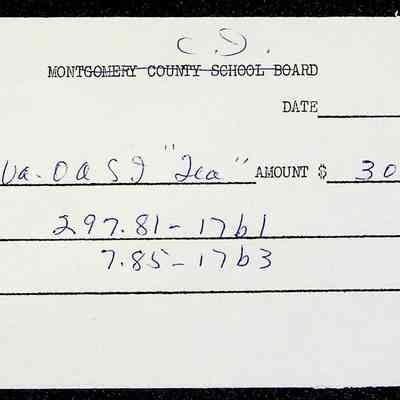 C.S.
MONTGOMERY COUNTY SCHOOL BOARD
DATE
Va. OASI "Tea" AMOUNT $ 30
297.81-17b1
7.85-17b3